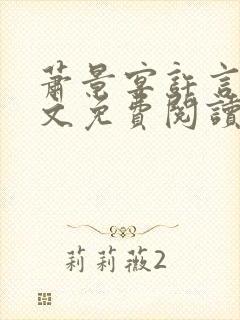 蕭景宴許言
文免費閱讀
莉莉薇2